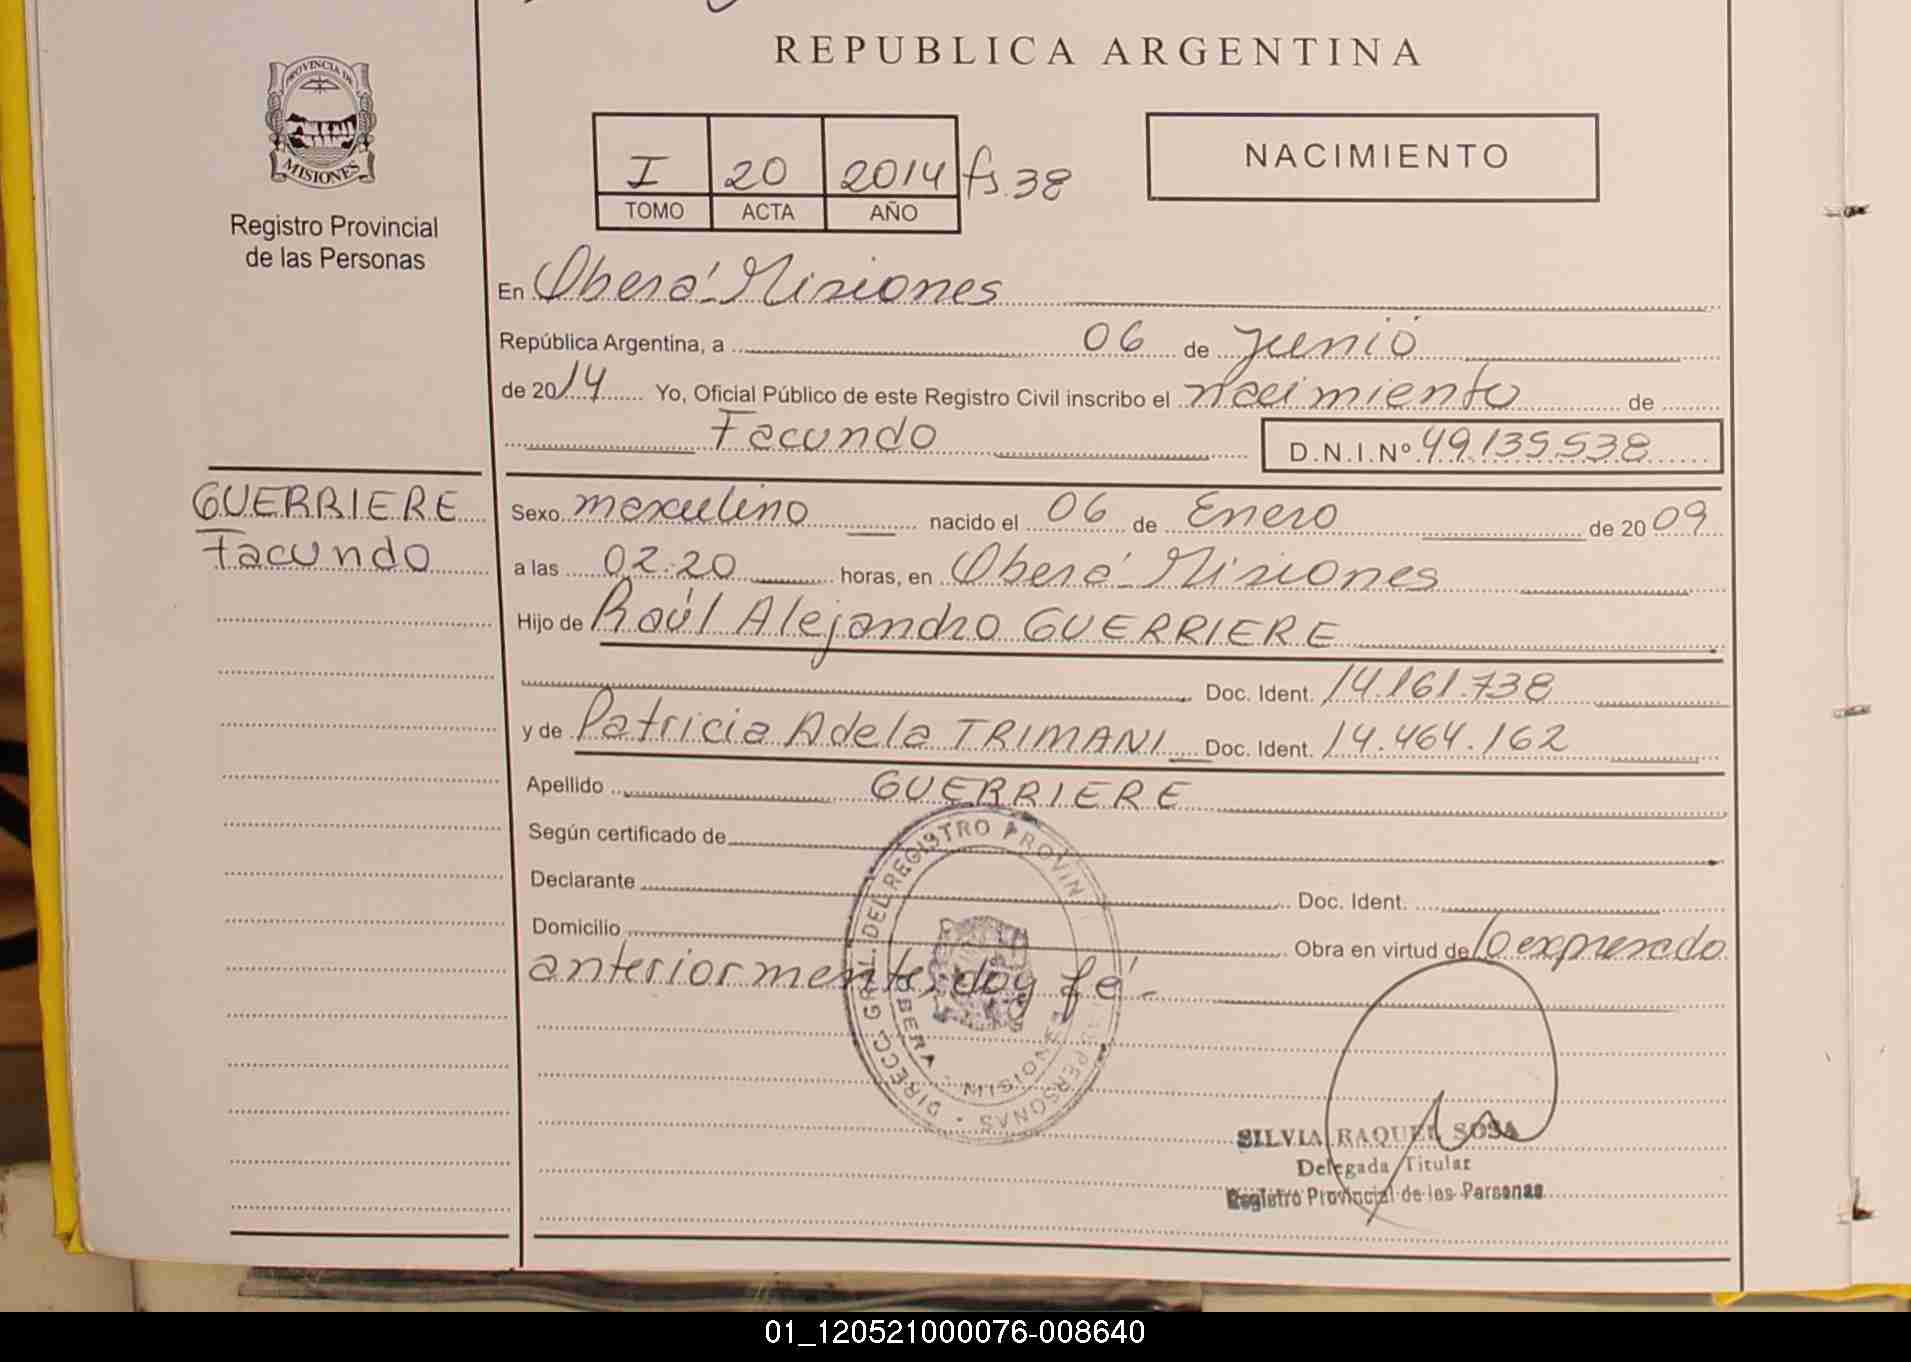 REPUBLICA ARGENTINA
PROVINCIA DE
MISIONES
Registro Provincial
de las Personas
I 20 2014 fs.38
TOMO ACTA AÑO
NACIMIENTO
En Oberá - Misiones
República Argentina, a 06 de junio
de 2014 Yo, Oficial Público de este Registro Civil inscribo el nacimiento de
Facundo D.N.I.Nº 49.135.538
GUERRIERE
Facundo
Sexo masculino nacido el 06 de Enero de 2009
a las 02.20 horas, en Oberá - Misiones
Hijo de Raúl Alejandro GUERRIERE
Doc. Ident. 14.161.738
y de Patricia Adela TRIMANI Doc. Ident. 14.464.162
Apellido GUERRIERE
Según certificado de
Declarante Doc. Ident.
Domicilio Obra en virtud de lo expresado
anteriormente, doy fé.-
DIRECC. GRAL. DEL REGISTRO PROVIN PERSONAS
OBERA - MISIONES
SILVIA RAQUEL SOSA
Delegada Titular
Registro Provincial de las Personas
01_120521000076-008640